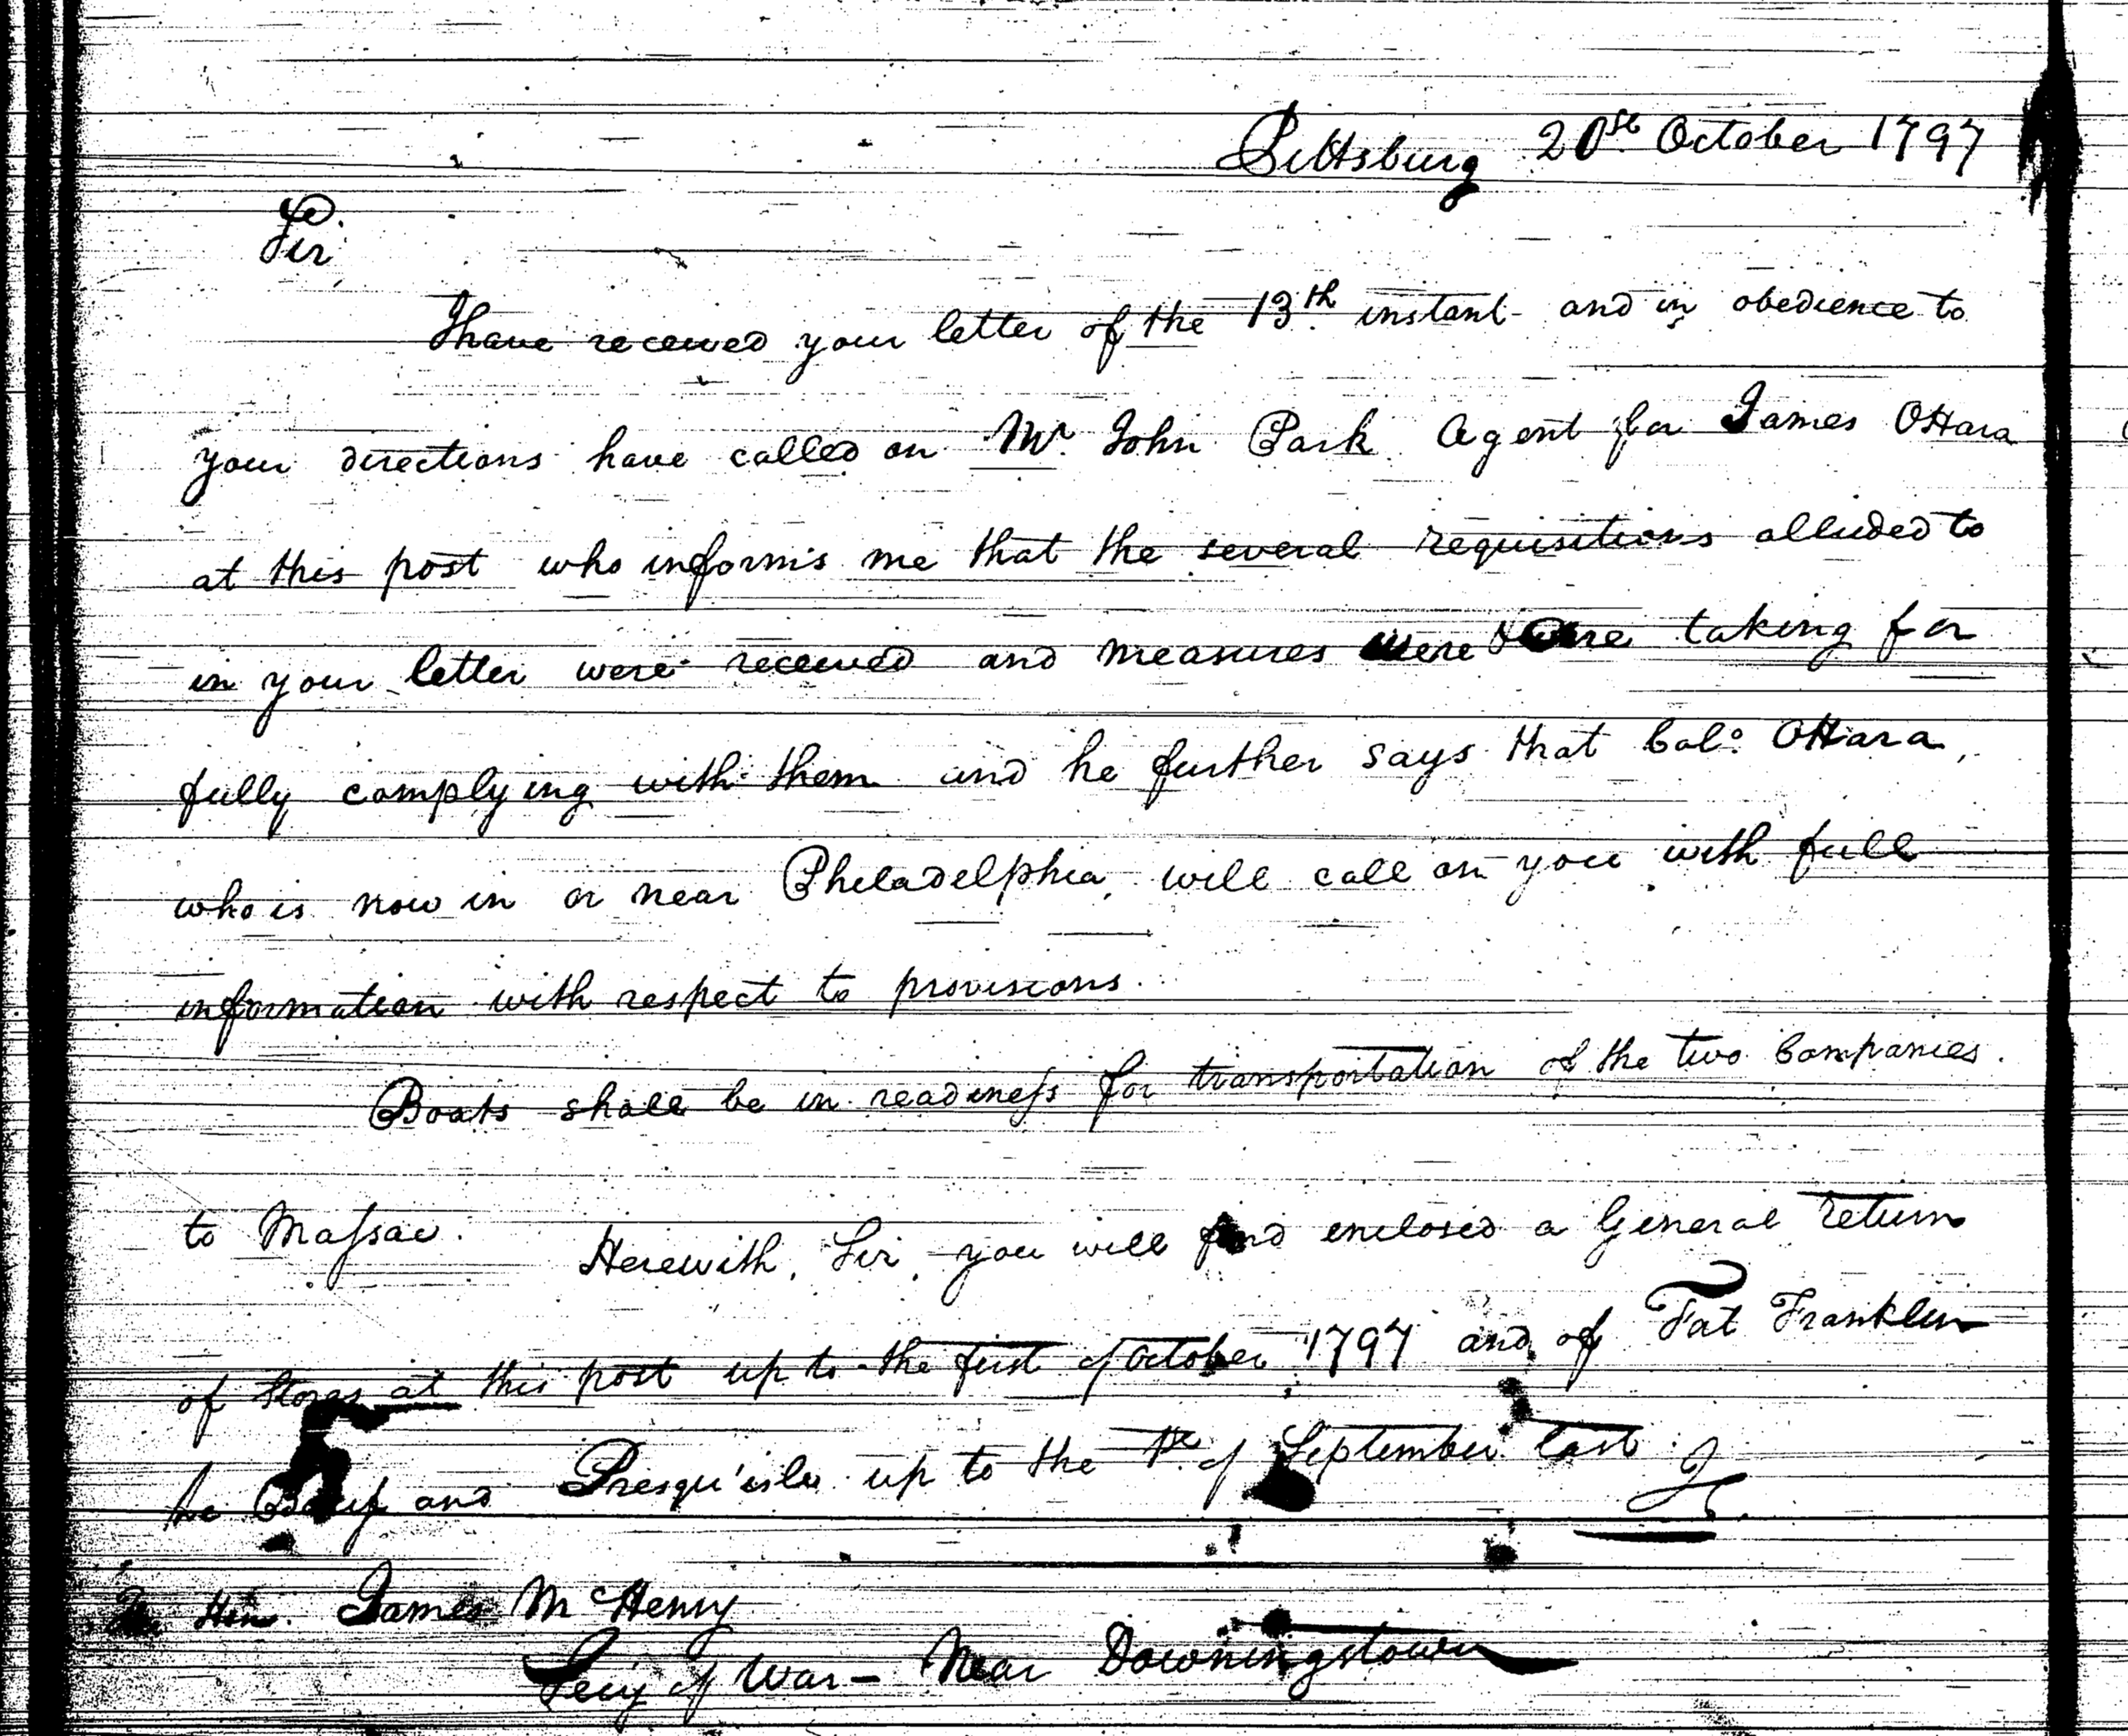 Pittsburg 20st October 1797
Sir
I have received your letter of the 13th instant and in obedience to
your directions have called on Mr John Park Agent for James OHara
at this post who informs me that the several requisitions alluded to
in your letter were received and measures were taking for
fully complying with them and he further says that Colo. OHara,
who is now in or near Philadelphia, will call on you with full
information with respect to provisions.
Boats shall be in readiness for transportation of the two Companies.
to Massac. Herewith, Sir, you will find enclosed a General return
of Stores at this post up to the first of October 1797 and of Fat Franklin
Le Boeuf and Presqu'isle up to the 1st of September last.
Hon. James McHenry
Secy of War - Near Downingstown